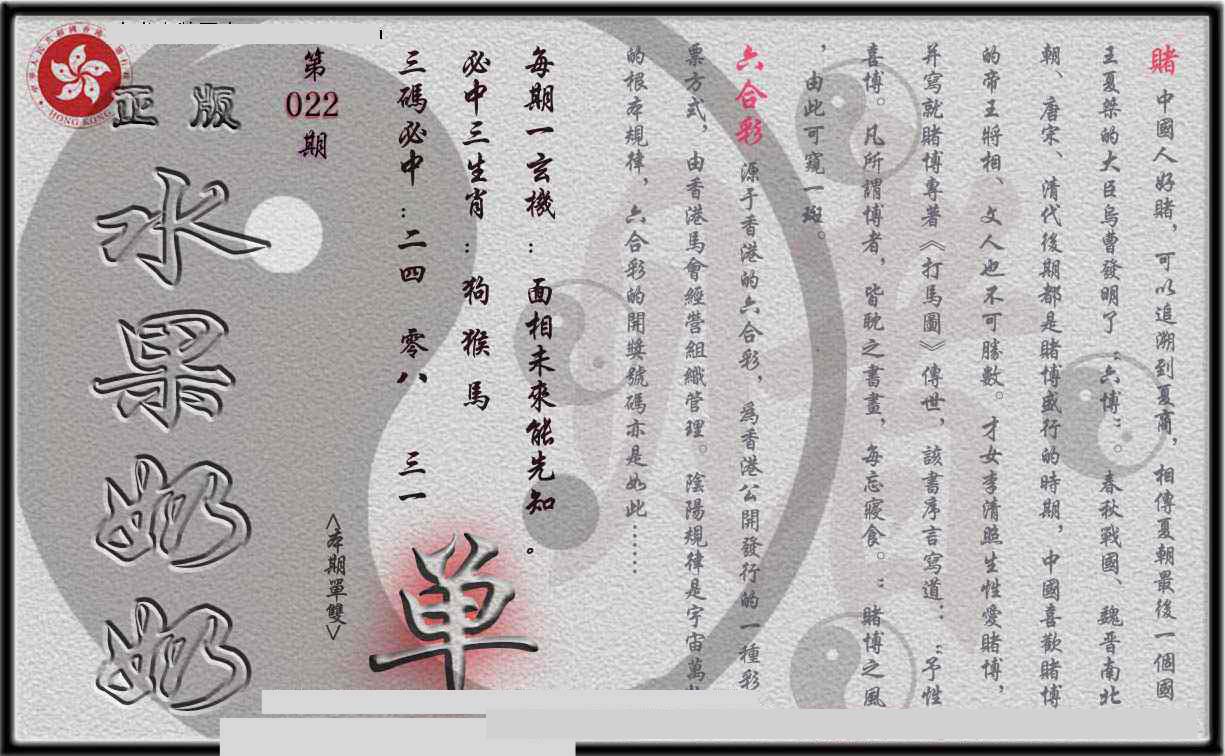 賭 中國人好賭，可以追溯到夏商，相傳夏朝最後一個國
王夏桀的大臣烏曹發明了“六博”。春秋戰國、魏晋南北
朝、唐宋、清代後期都是賭博盛行的時期，中國喜歡賭博
的帝王將相、文人也不可勝數。才女李清照生性愛賭博，
并寫就賭博專著《打馬圖》傳世，該書序言寫道：“予性
喜博。凡所謂博者，皆耽之書畫，每忘寢食。”賭博之風
，由此可窺一斑。
六合彩 源于香港的六合彩，為香港公開發行的一種彩
票方式，由香港馬會經營組織管理。陰陽規律是宇宙萬
的根本規律，六合彩的開獎號碼亦是如此……
每期一玄機：面相未來能先知。
必中三生肖：狗 猴 馬
三碼必中：二四 零八 三一
第
022
期
<本期單雙>
单
正版
水果奶奶
HONG KONG